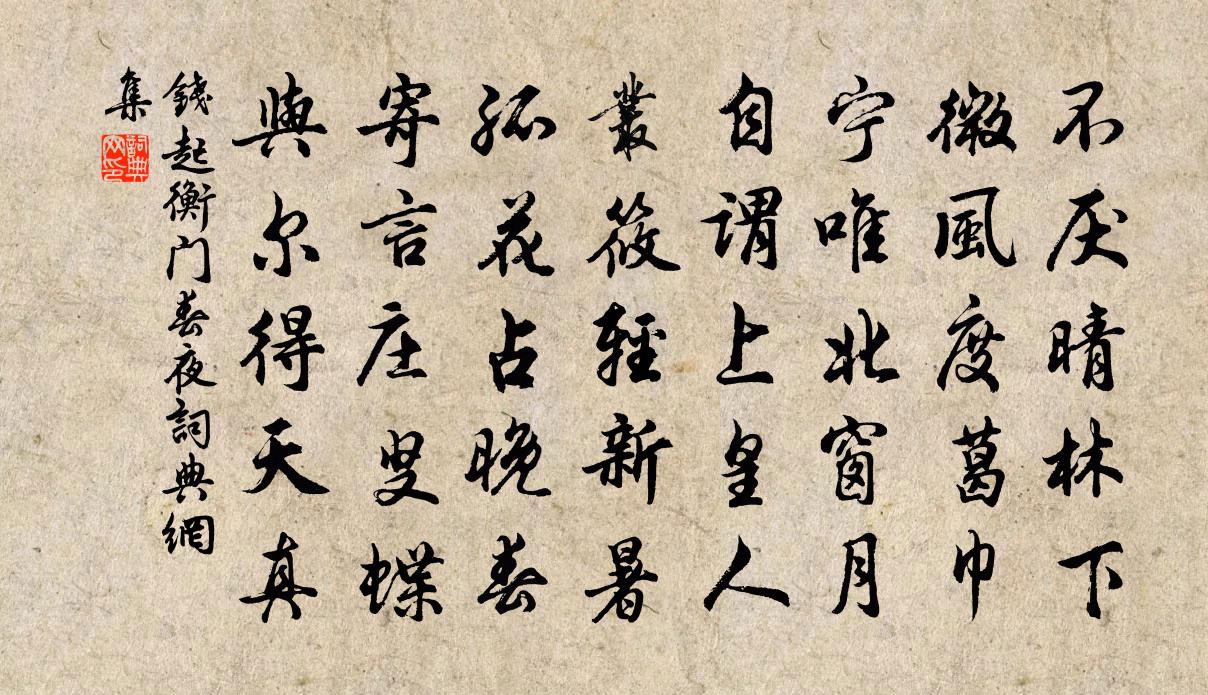 不厌晴林下
微風度葛巾
宁唯北窗月
自谓上皇人
叢筱輕新暑
孤花占晚春
寄言庄叟蝶
與尔得天真
錢起衡门春夜詞典網
集
詞典
网印